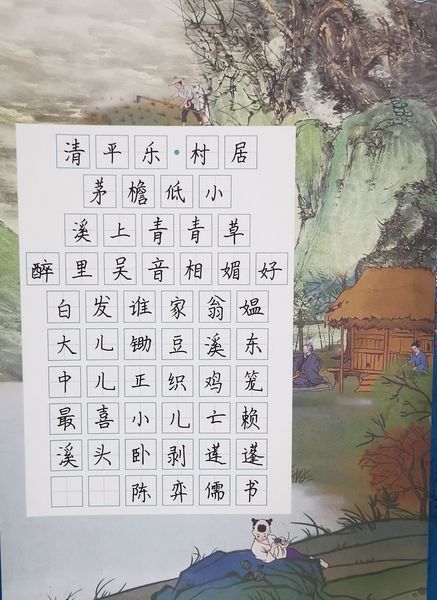 清平乐·村居
茅檐低小
溪上青青草
醉里吴音相媚好
白发谁家翁媪
大儿锄豆溪东
中儿正织鸡笼
最喜小儿亡赖
溪头卧剥莲蓬
陈弈儒书